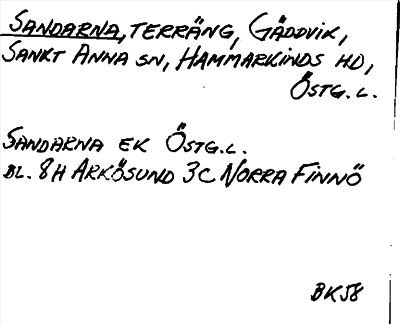 SANDARNA, TERRÄNG, GÄDDVIK,
SANKT ANNA SN, HAMMARKINDS HD,
ÖSTG.L.
SANDARNA EK ÖSTG.L.
BL. 8H ARKÖSUND 3C NORRA FINNÖ
BK58